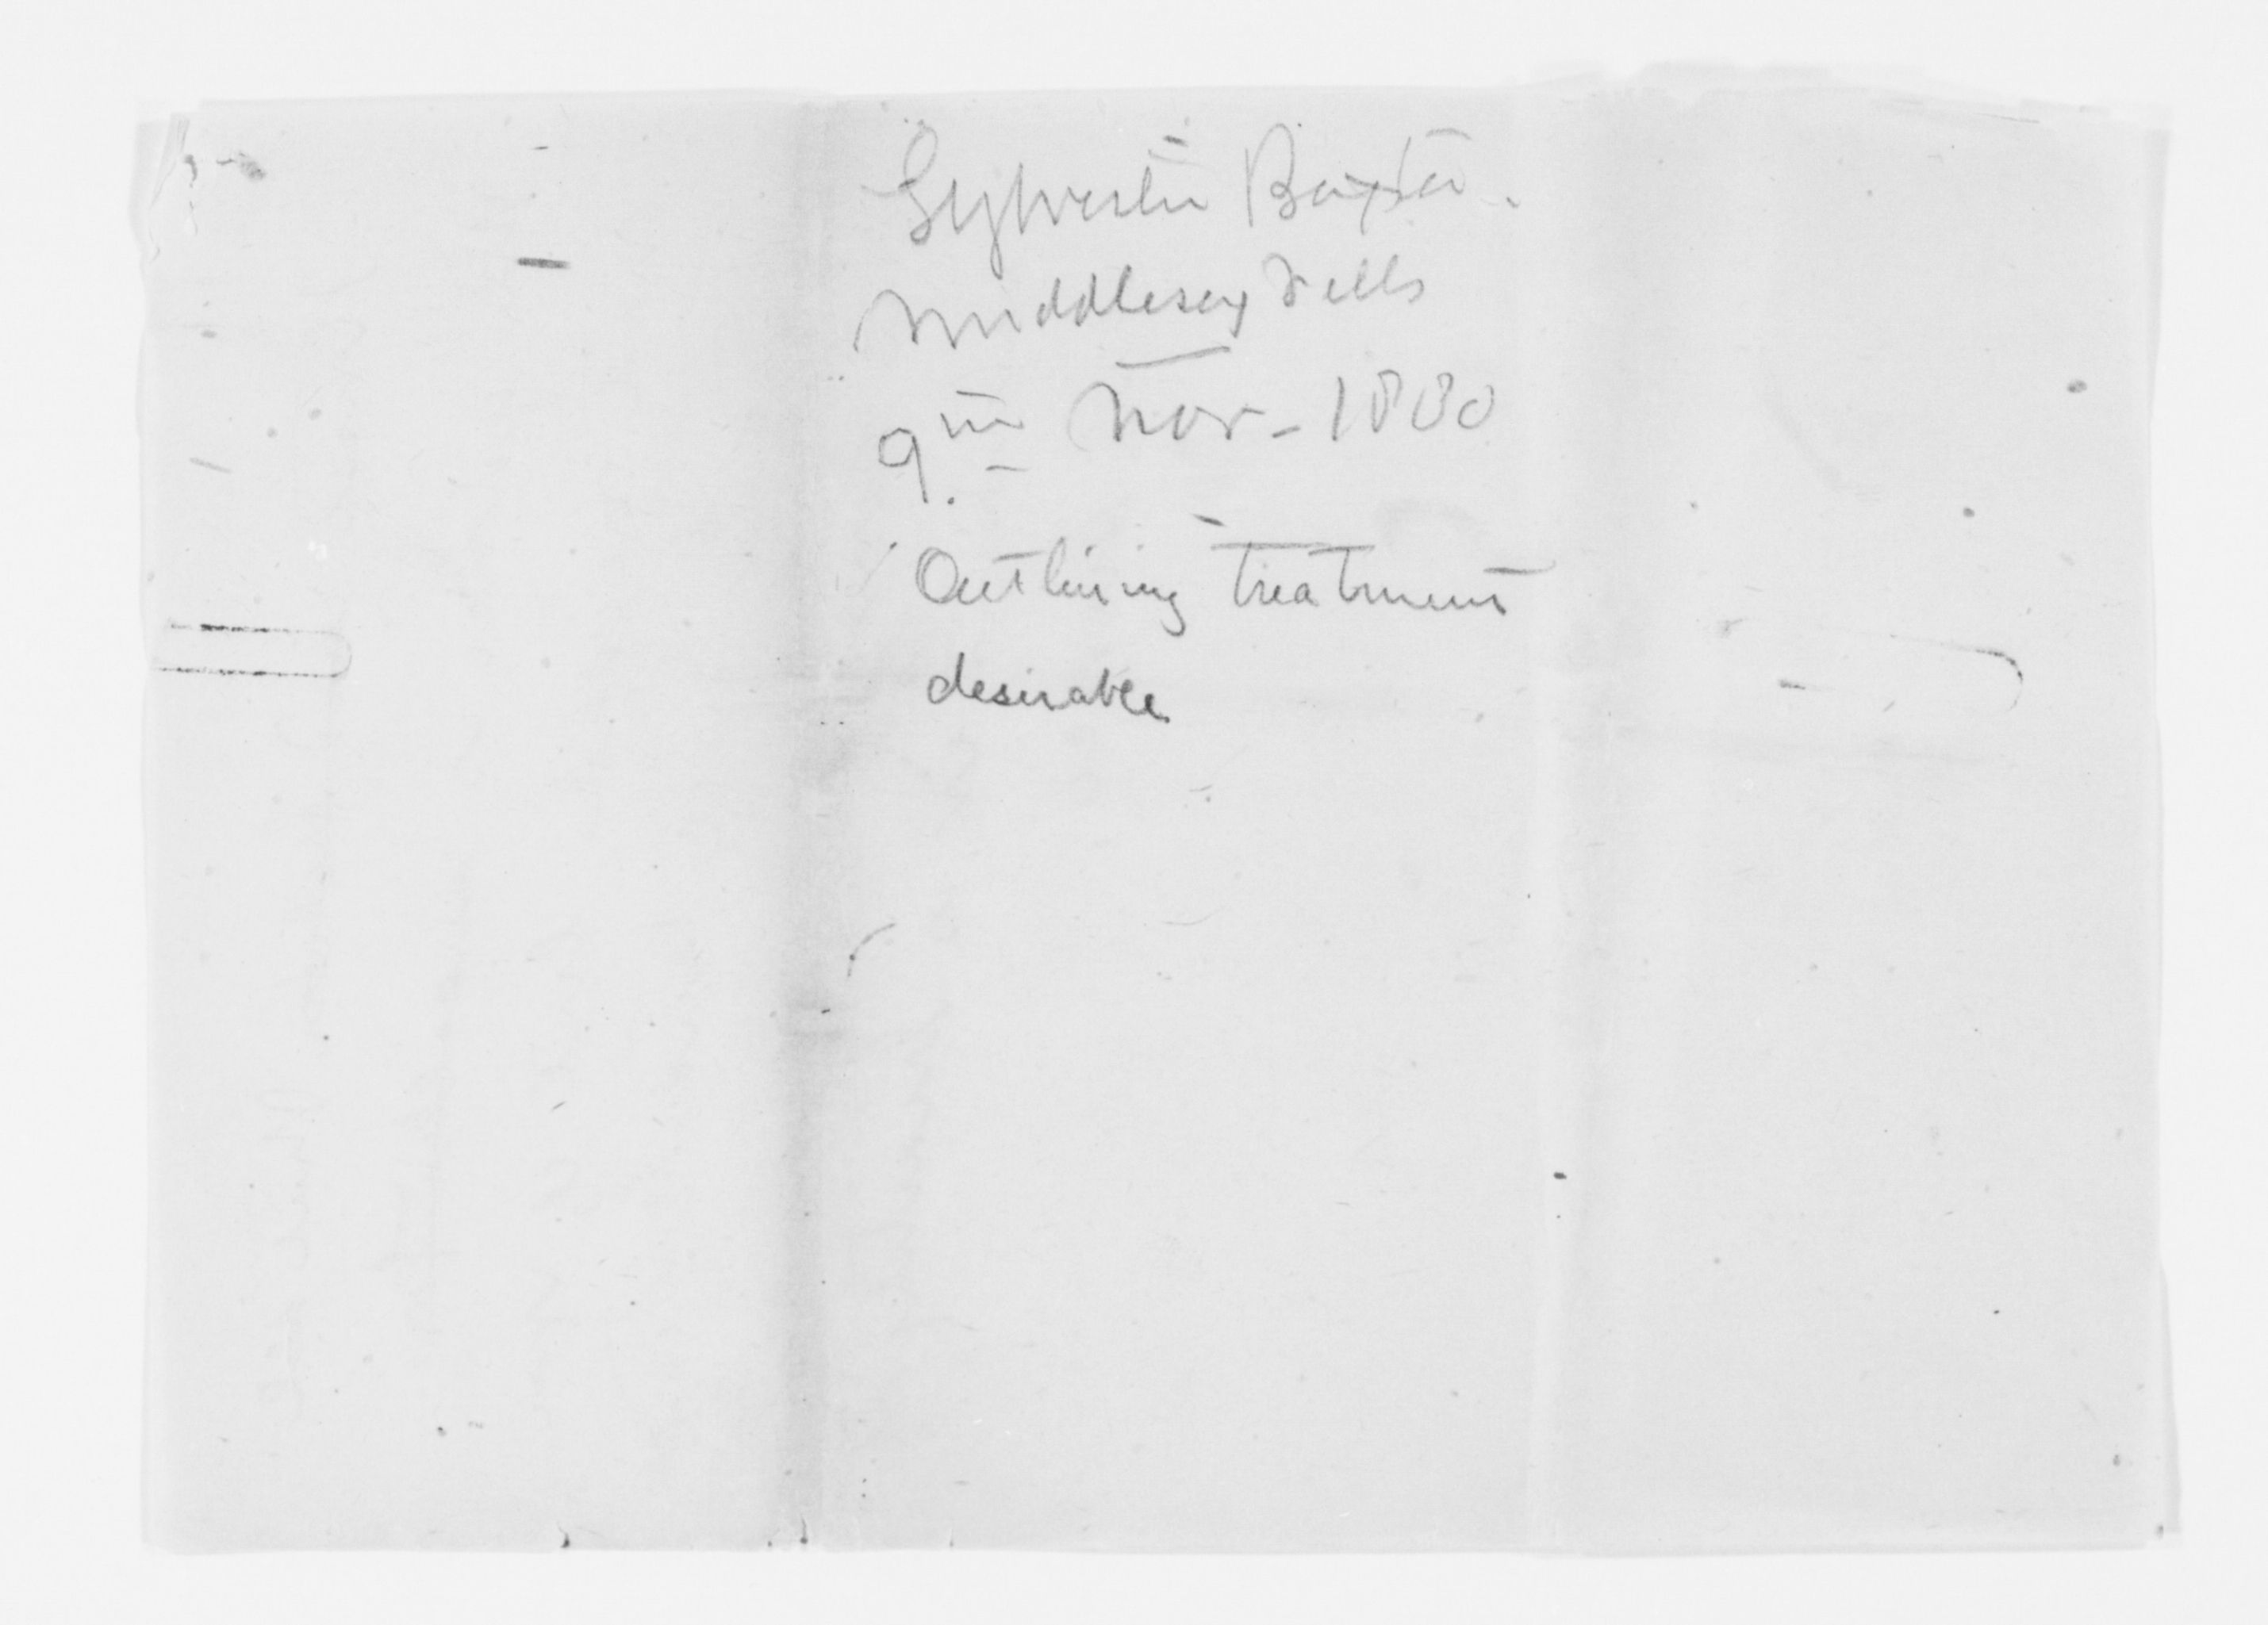 Sylvester Baxter.
Middlesex Fells
9th Nov - 1880
Outlining treatment
desirable